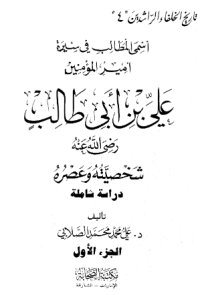 تاريخ الخلفاء الراشدين "٤"
أسمى المطالب في سيرة
أمير المؤمنين
علي بن أبي طالب
رضي الله عنه
شخصيته وعصره
دراسة شاملة
تأليف
د. علي محمد محمد الصلابي
الجزء الأول
مكتبة الصحابة
الإمارات - الشارقة